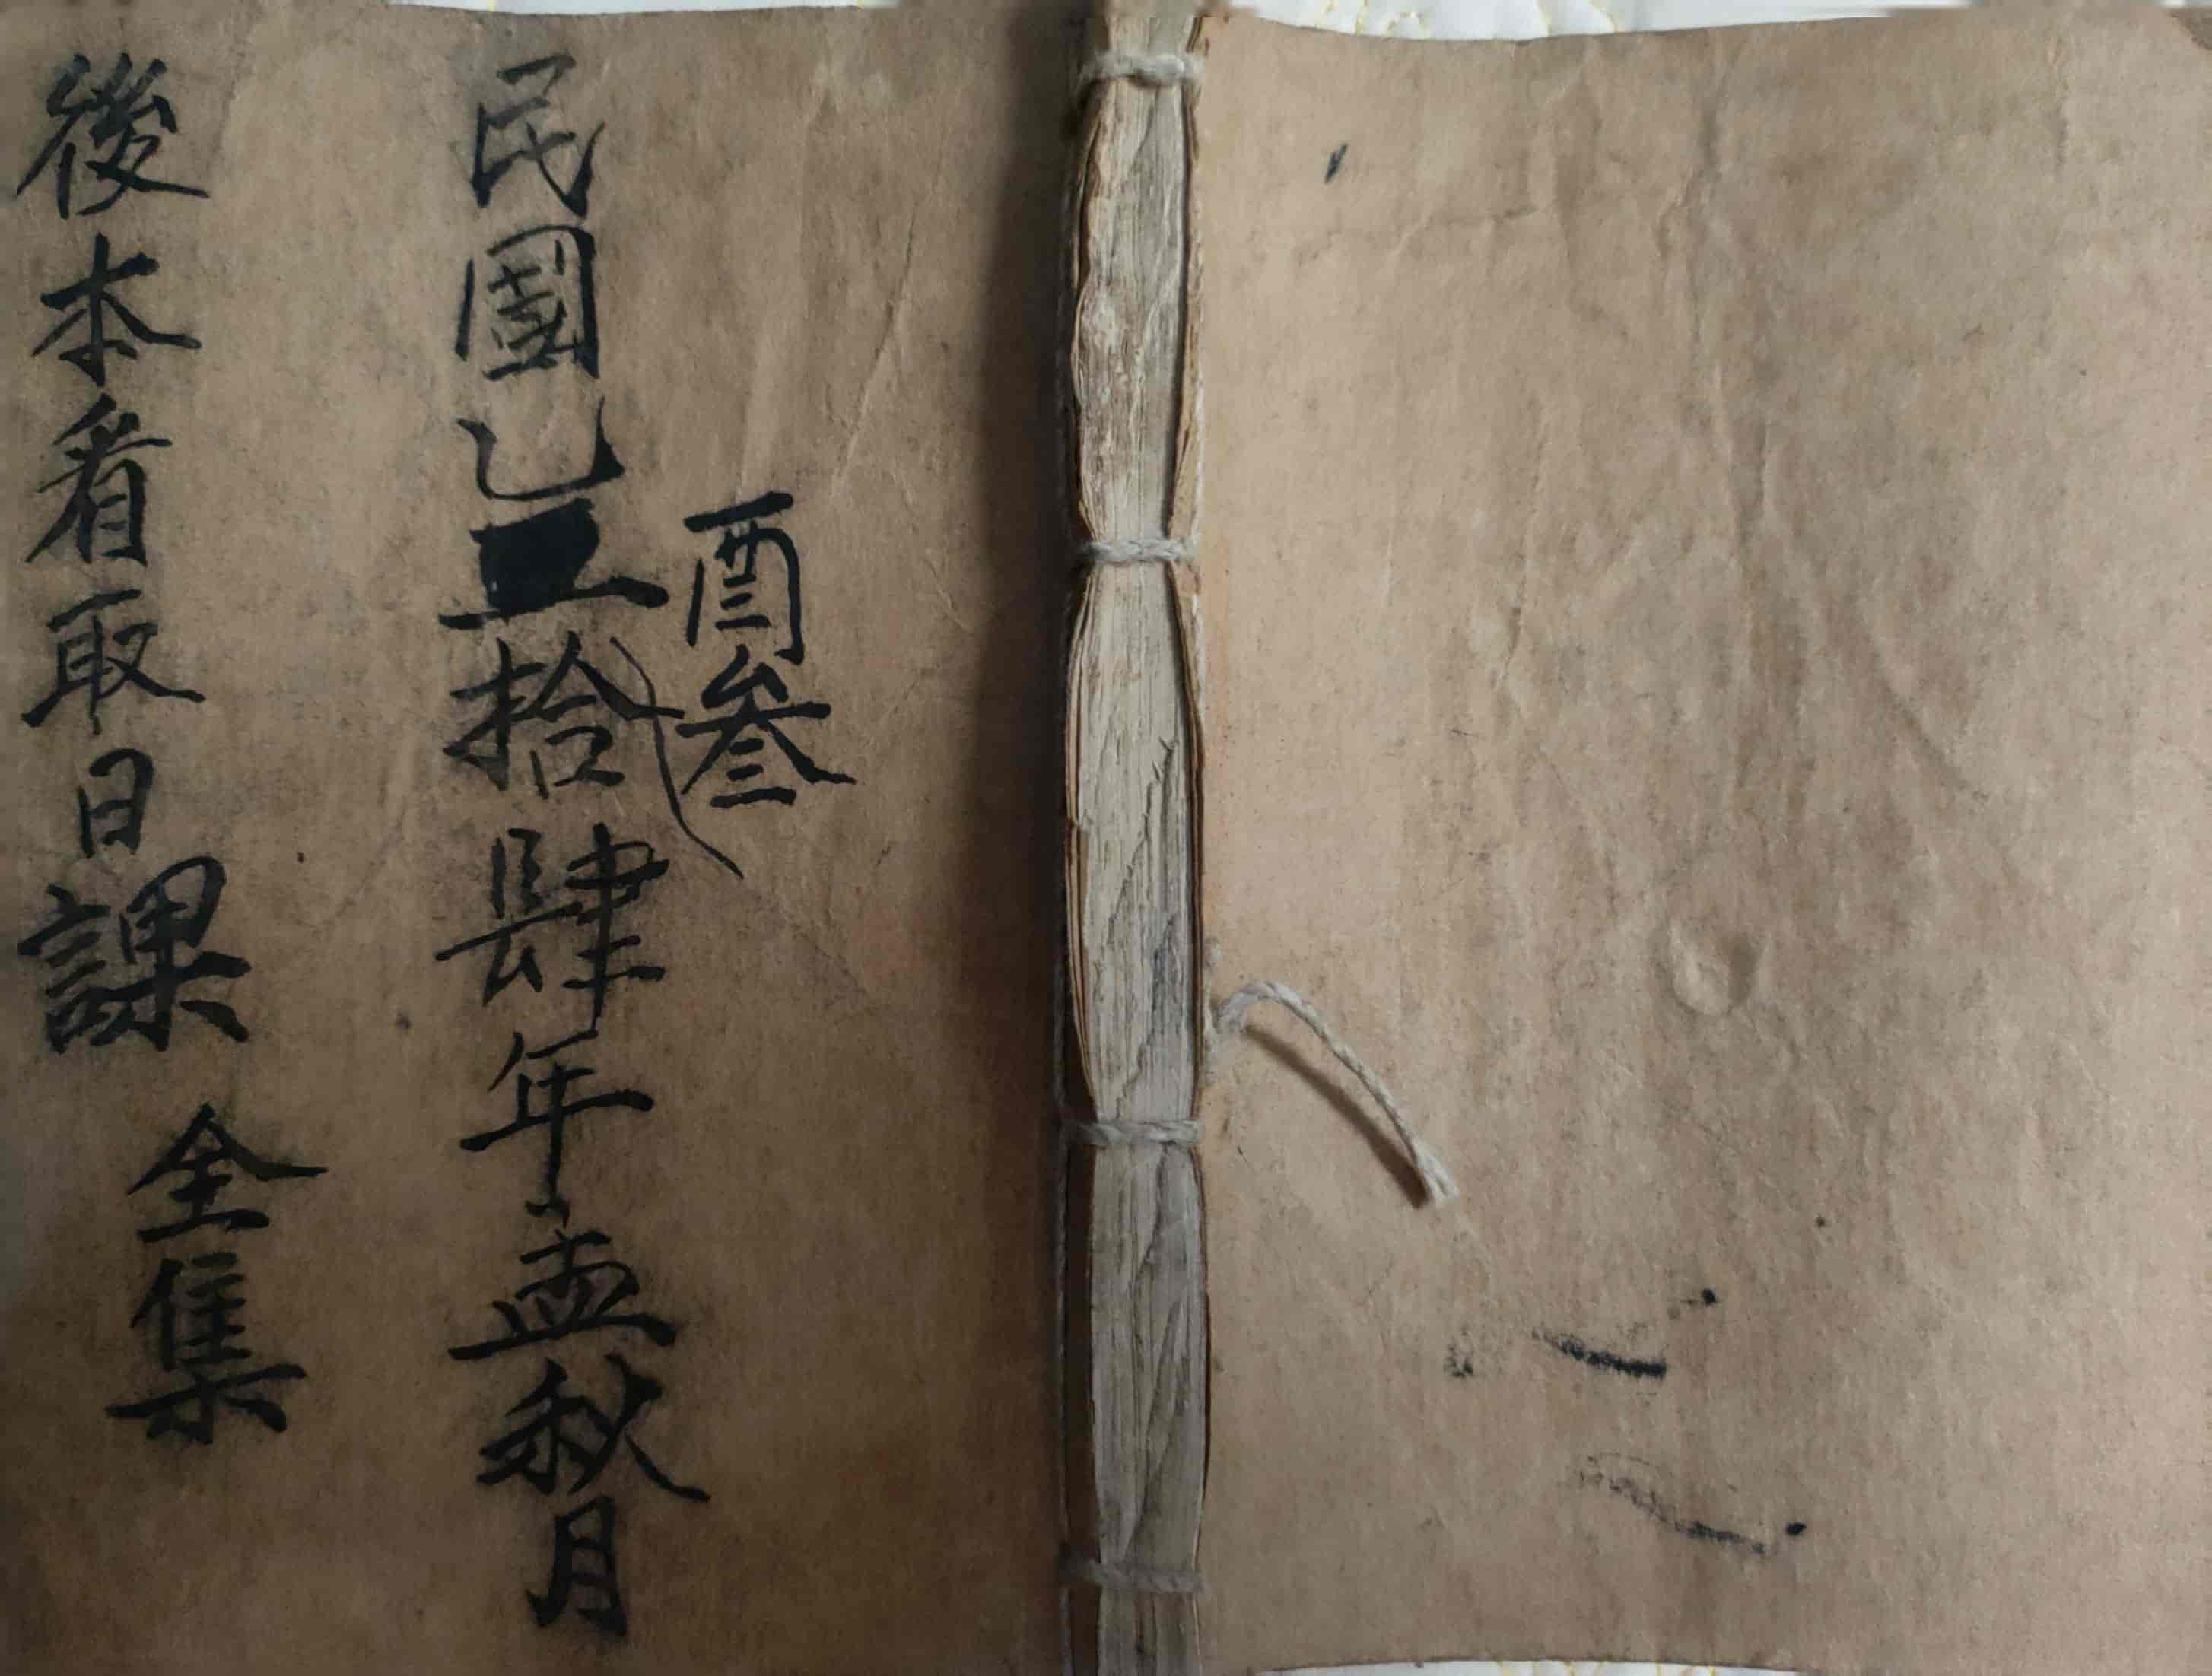 酉叁
民國乙拾肆年孟秋月
後本看取日課
全集